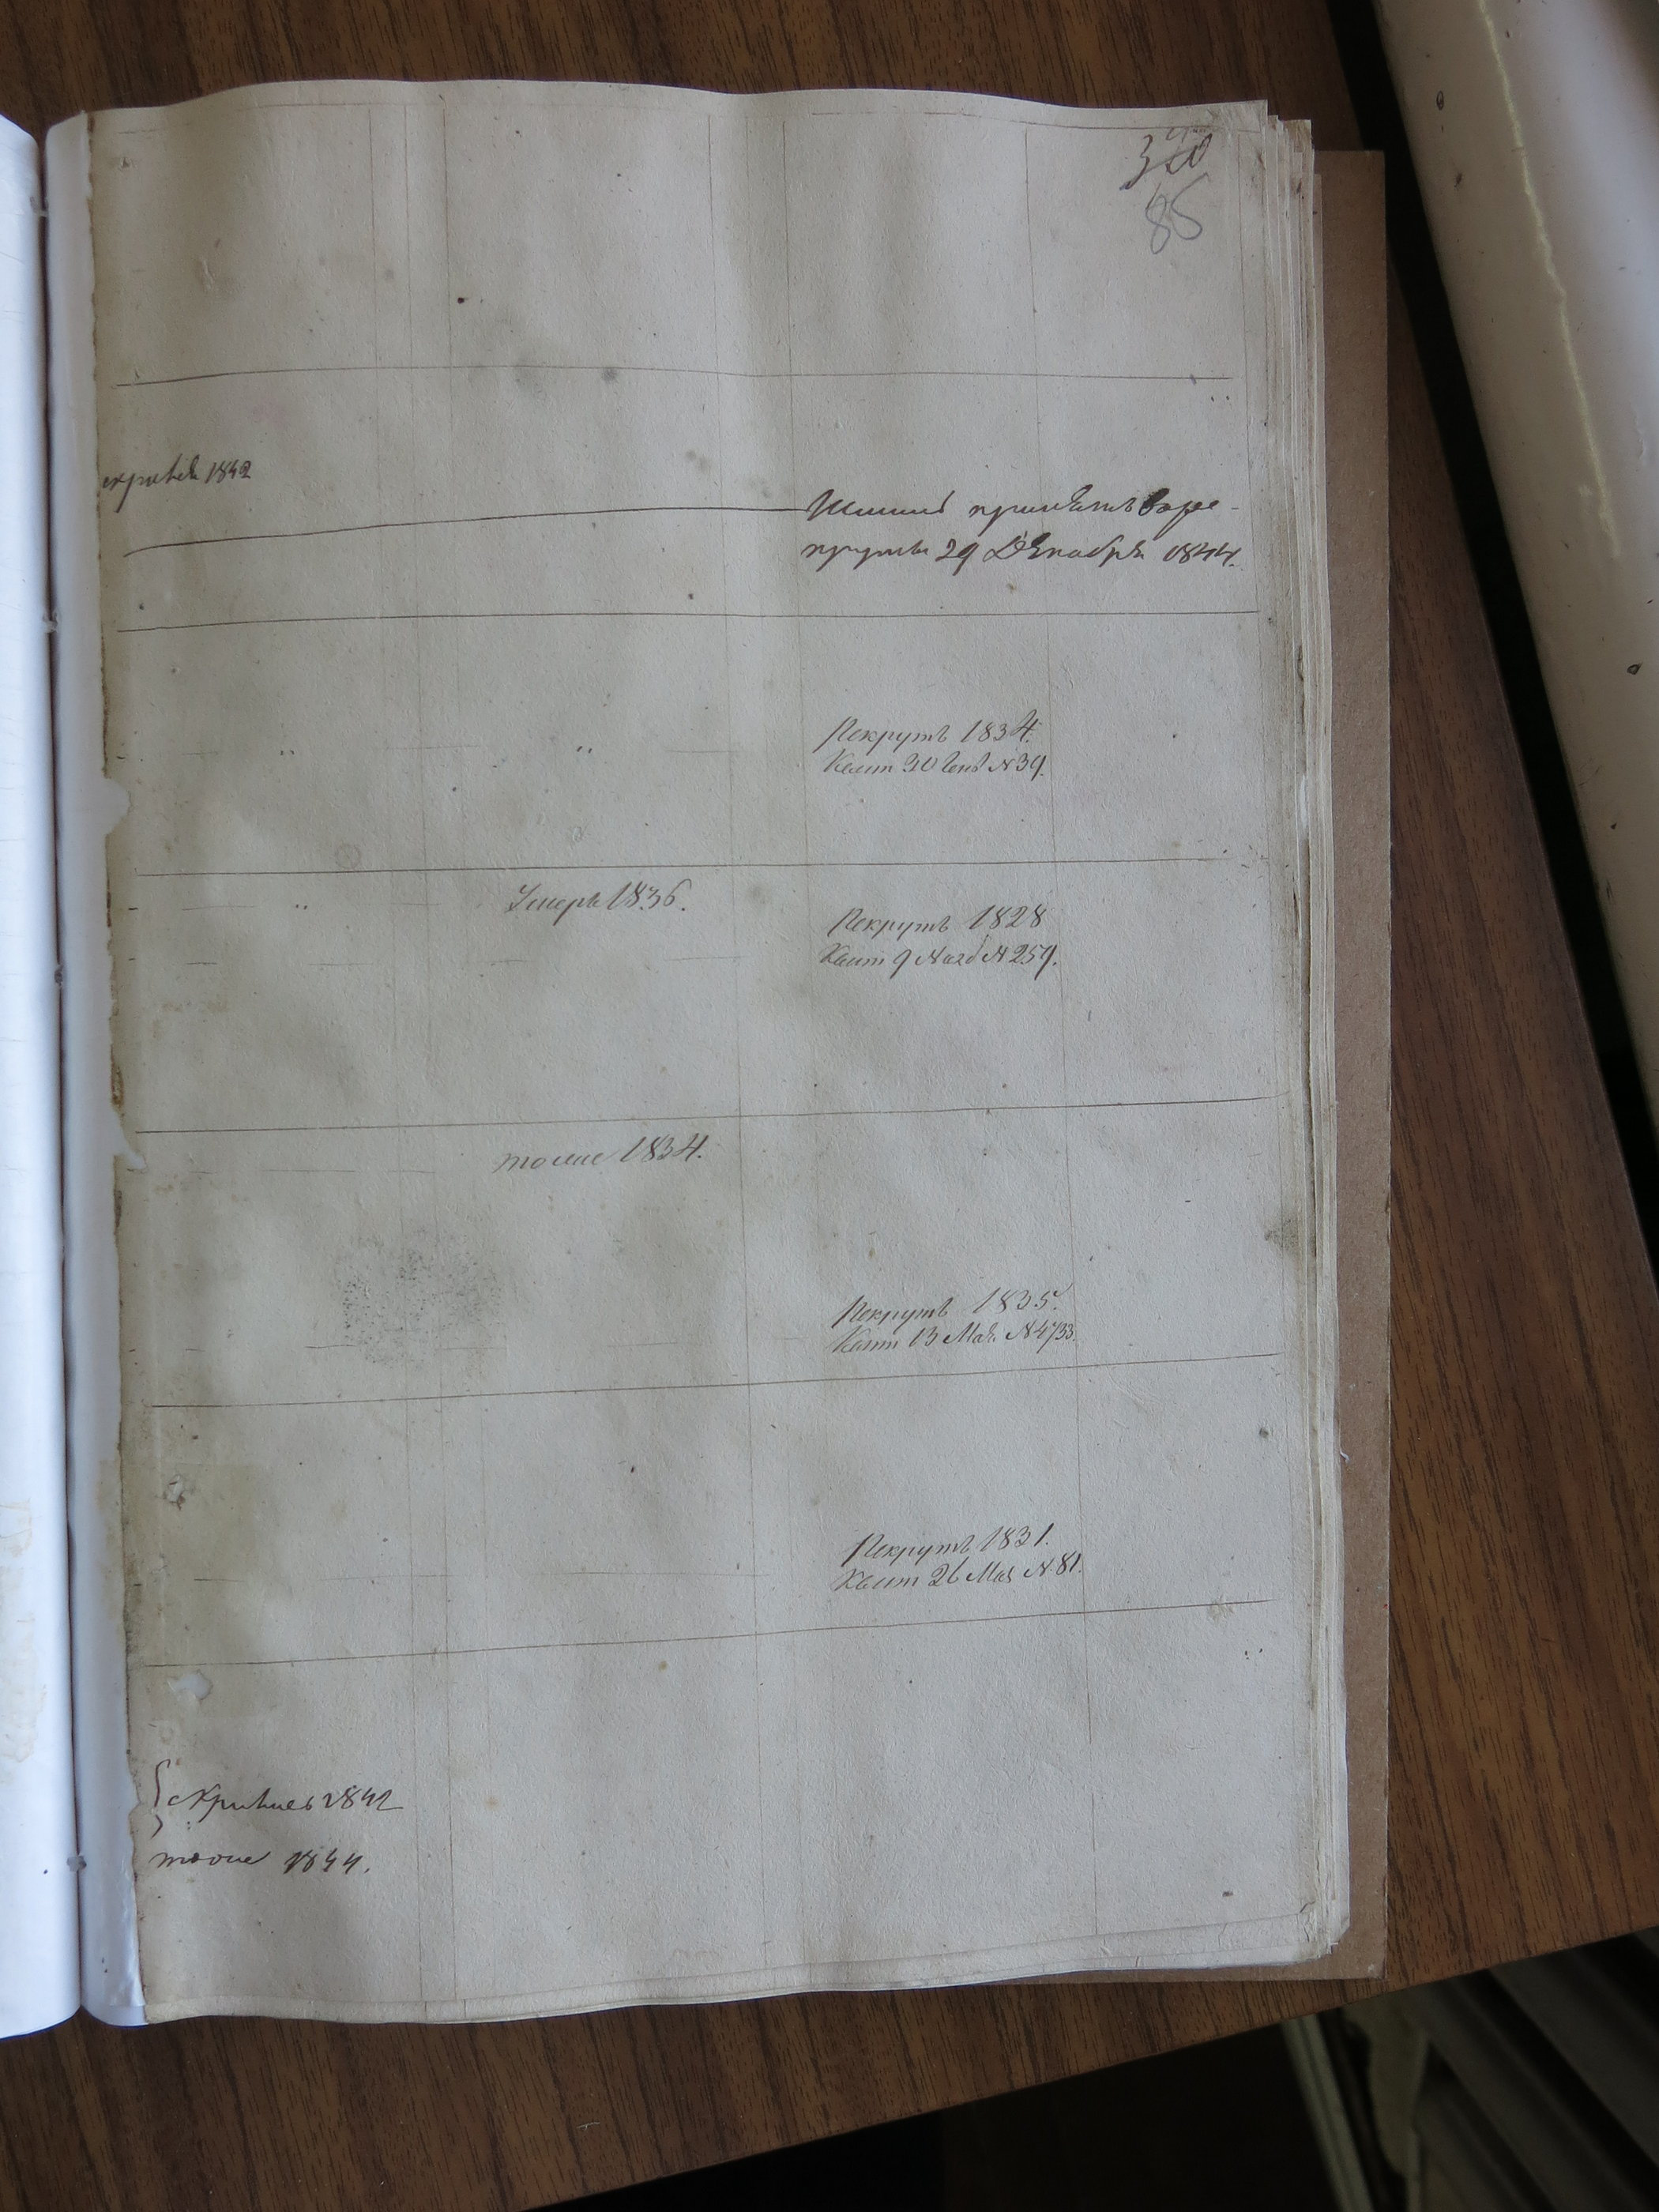 85
1842
принятъ въ ре-
круты 29 Декабря 1844.
Рекрутъ 1834.
Квит 30 Генв №39.
Умеръ 1836.
Рекрутъ 1828
Квит 9 Нояб №259.
тоже 1834.
Рекрутъ 1835.
Квит 13 Мая №4733.
Рекрутъ 1831.
Квит 26 Мая №81.
1842
тоже 1844.